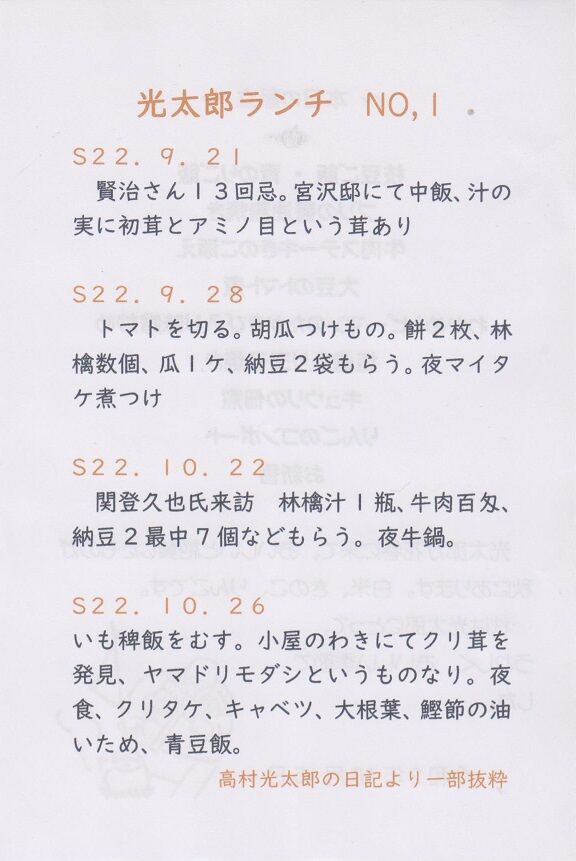 光太郎ランチ　NO,1
S22．9．21
　賢治さん13回忌。宮沢邸にて中飯、汁の
実に初茸とアミノ目という茸あり
S22．9．28
　トマトを切る。胡瓜つけもの。餅2枚、林
檎数個、瓜1ケ、納豆2袋もらう。夜マイタ
ケ煮つけ
S22．10．22
　関登久也氏来訪　林檎汁1瓶、牛肉百匁、
納豆2最中7個などもらう。夜牛鍋。
S22．10．26
いも稗飯をむす。小屋のわきにてクリ茸を
発見、ヤマドリモダシというものなり。夜
食、クリタケ、キャベツ、大根葉、鰹節の油
いため、青豆飯。
高村光太郎の日記より一部抜粋